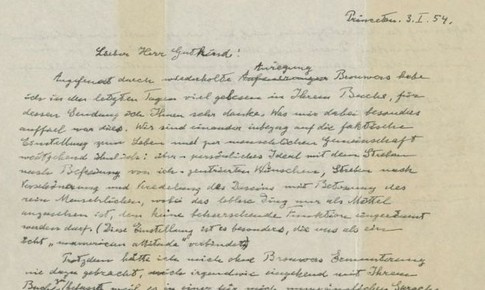 Princeton. 3. I. 54.
Lieber Herr Gutkind!
Anregung
Angefeuert durch wiederholte Brouwers habe
ich in den letzten Tagen viel gelesen in Ihrem Buche, für
dessen Sendung ich Ihnen sehr danke. Was mir dabei besonders
auffiel war dies. Wir sind einander inbezug auf die faktische
Einstellung zum Leben und zur menschlichen Gemeinschaft
weitgehend ähnlich: persönliches Ideal mit dem Streben
nach Befreiung von ich-zentrierten Wünschen, Streben nach
Verschönerung und Veredelung des Daseins mit Betonung des
rein Menschlichen, wobei das leblose Ding nur als Mittel
anzusehen ist, dem keine beherrschende Funktion eingeräumt
werden darf. (Diese Einstellung ist es besonders, die uns als ein
echt "unamerican attitude" verbindet)
Trotzdem hätte ich mich ohne Brouwers Ermunterung
nie dazu gebracht, mich irgendwie eingehend mit Ihrem
weil es in einer für mich Sprache